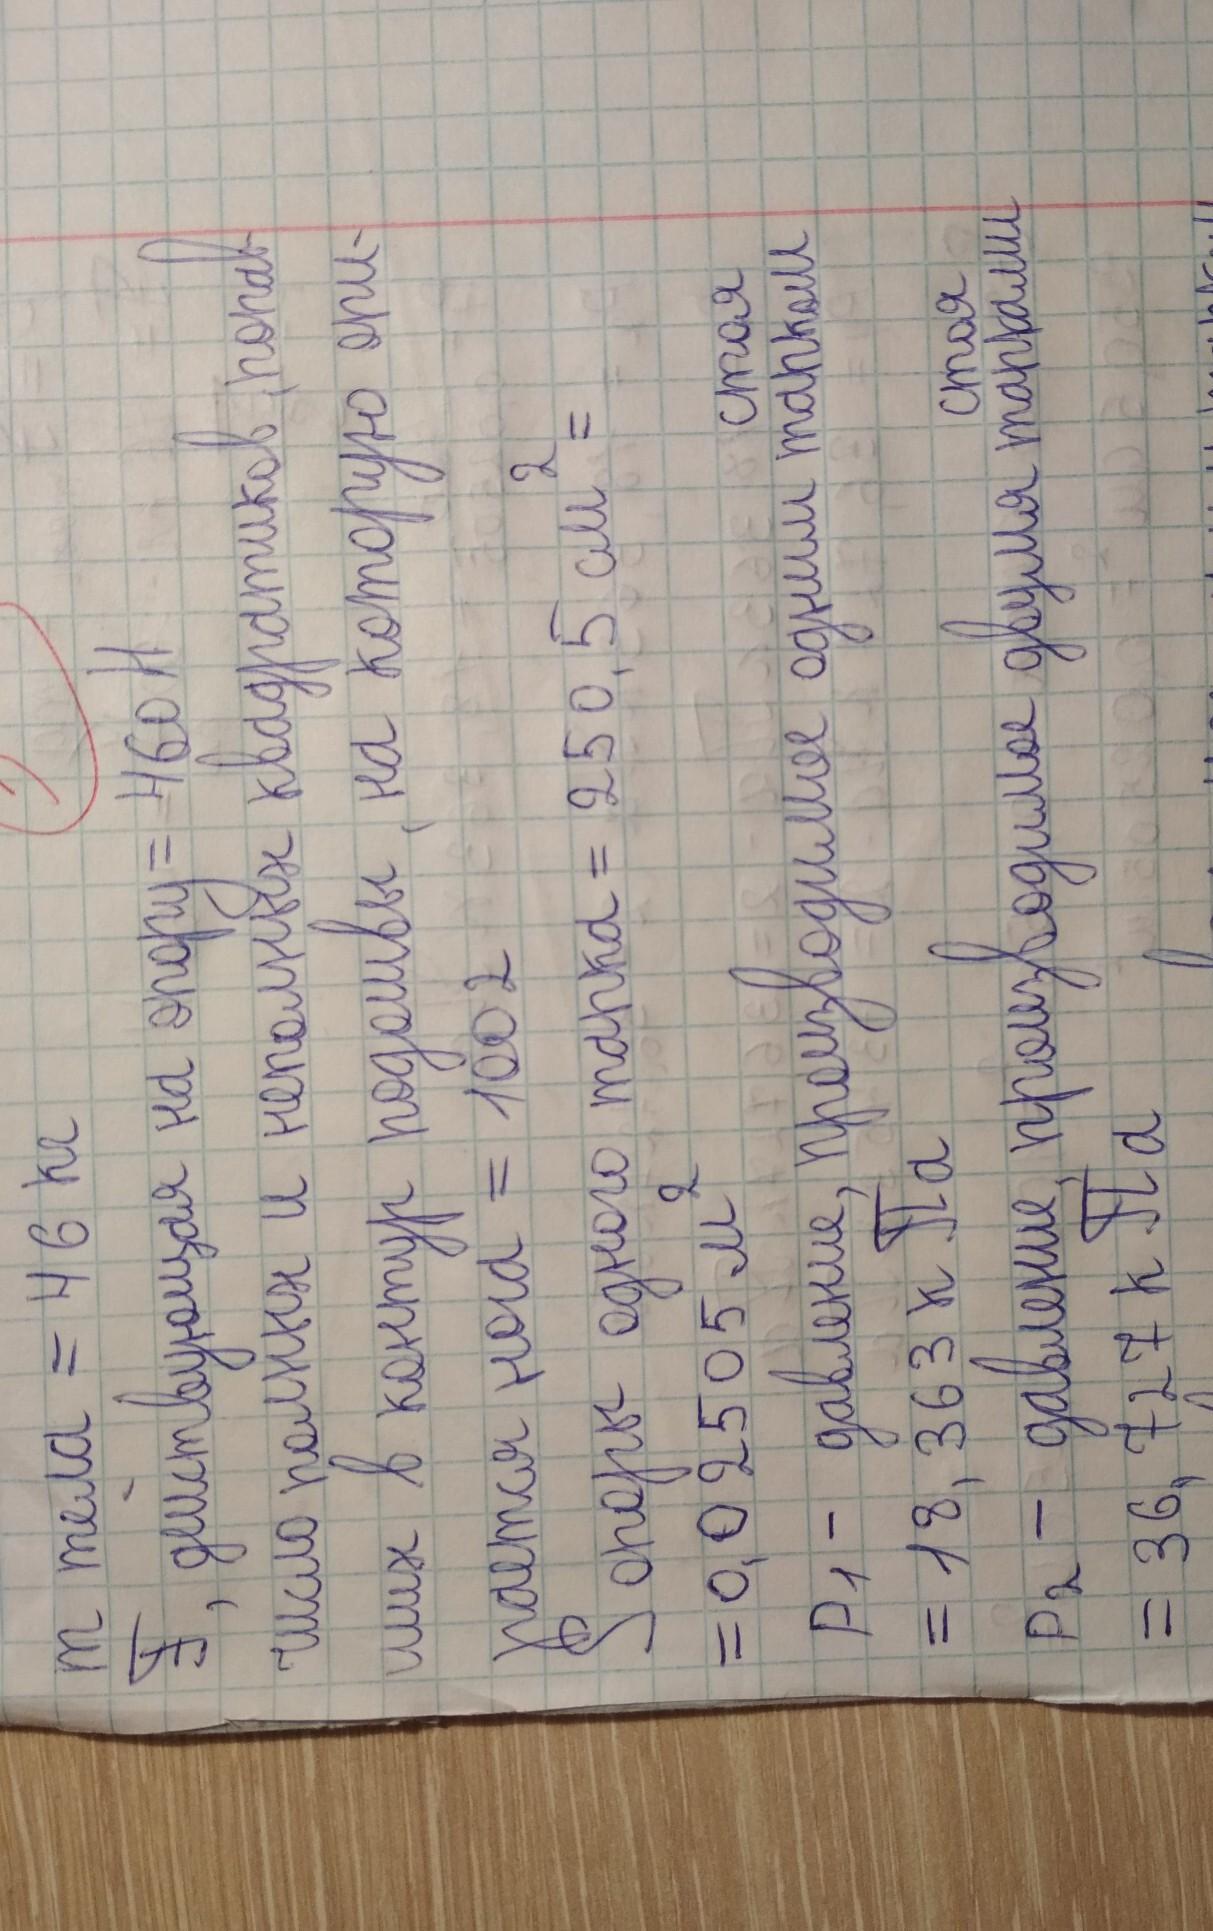 m тела = 46 кг
F, действующая на опору = 460 Н
Число полных и неполных квадратиков, попав-
ших в контур подошвы, на которую опи-
рается нога = 1002
S опоры одного тапка = 250,5 см²=
= 0,02505 м²
P₁ - давление, производимое стоя одним тапком
= 18,363 к Па
P₂ - давление, производимое стоя двумя тапками
= 36,727 к Па